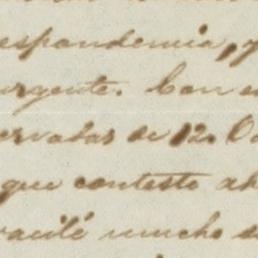 espondencia, y
urgente. Con
ervadas de 12. O
que contesto ah
vacilé mucho